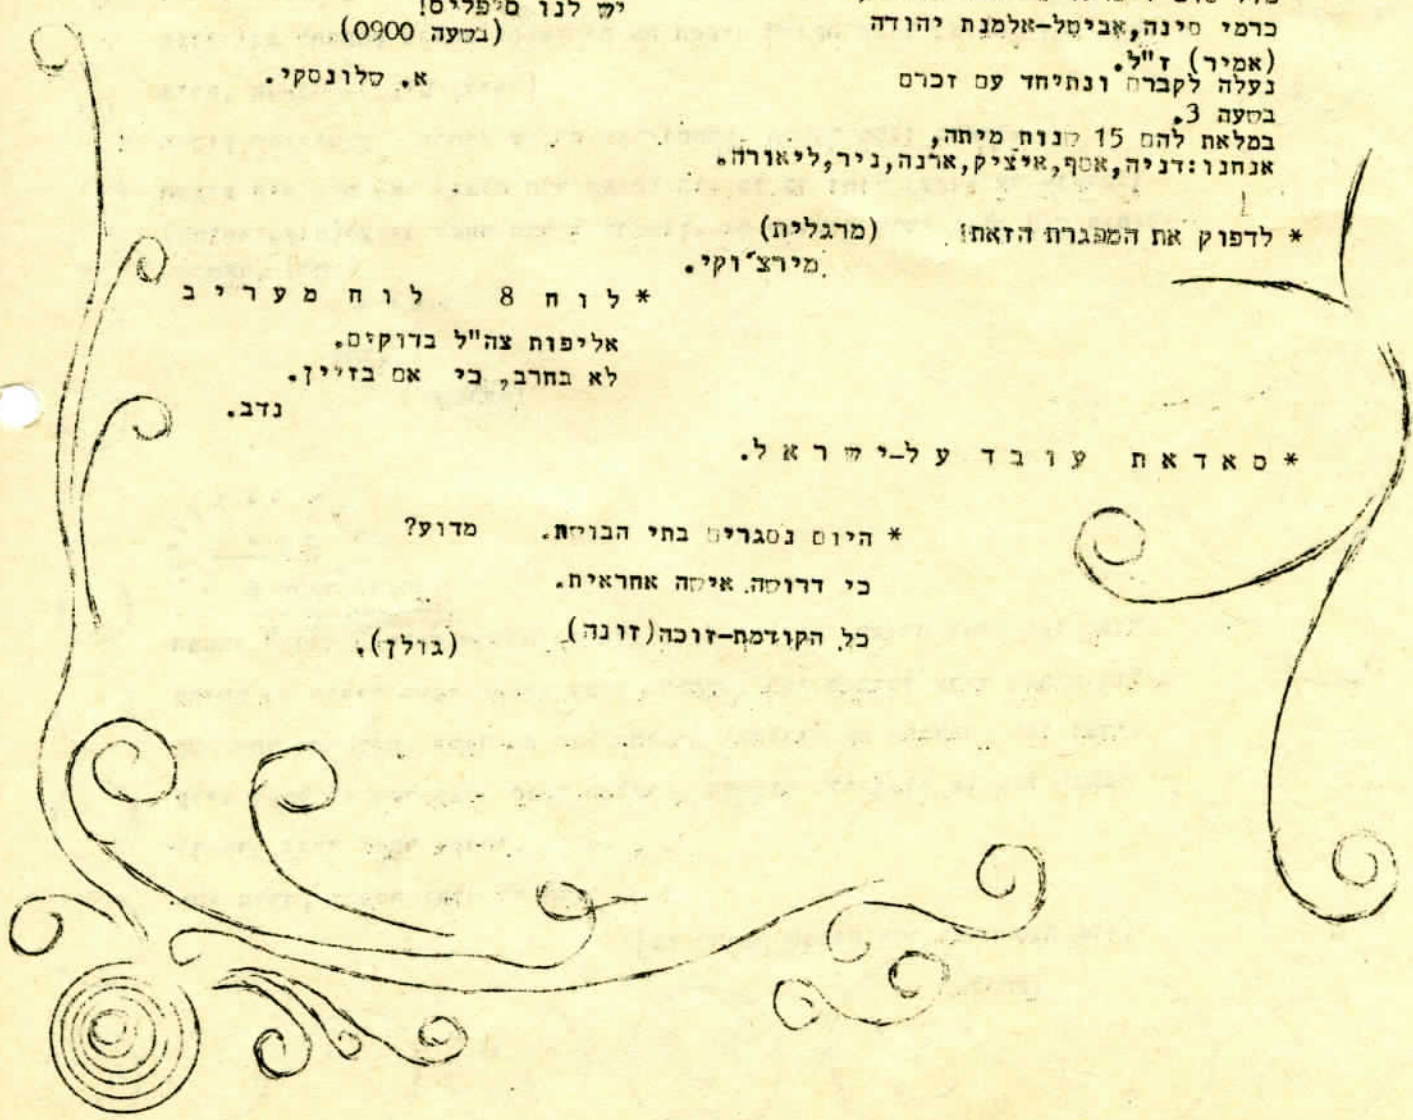 כרמי סינה,אביטל-אלמנת יהודה
(אמיר) ז"ל.
נעלה לקברם ונתיחד עם זכרם
בשעה 3.
במלאת להם 15 שנות מיתה,
אנחנו:דניה,אסף,איציק,ארנה,ניר,ליאורה.
יש לנו סיפליס!
(בשעה 0900)
א. סלונסקי.
* לדפוק את המפגרת הזאת! (מרגלית)
מירצ'וקי.
*לוח 8 לוח מעריב
אליפות צה"ל בדוקים.
לא בחרב, כי אם בזיין.
נדב.
*סאדאת עובד על-ישראל.
* היום נסגרים בתי הבושת. מדוע?
כי דרושה אישה אחראית.
כל הקודמת-זוכה(זונה) (גולן).